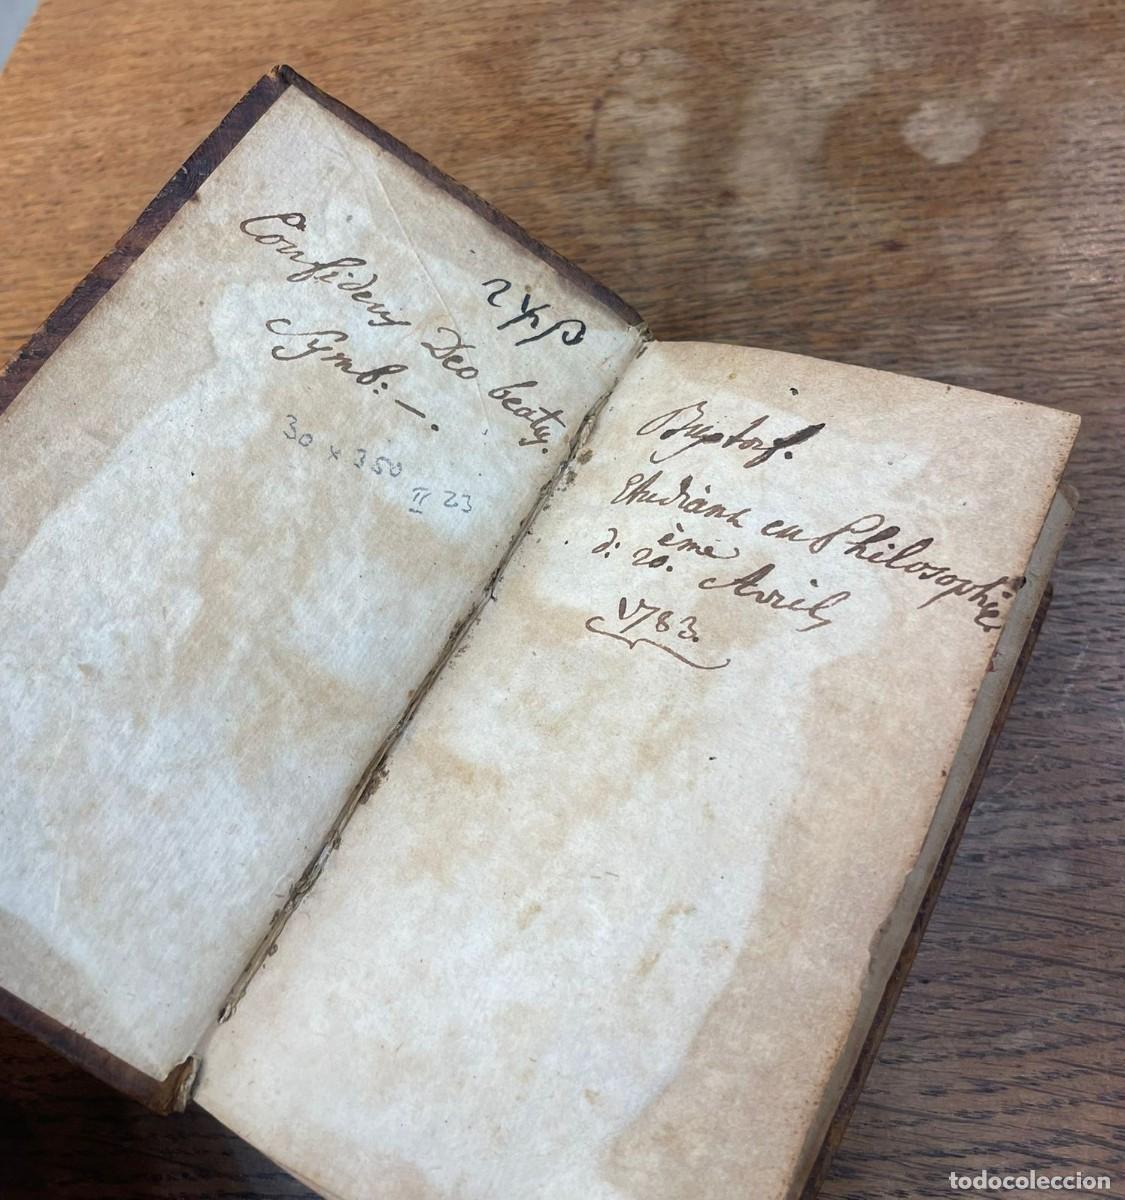 Confidens Deo beatus.
Symb: –.
30 x 350
II 23
Buxtorf.
Etudiant en Philosophie
d: 20.ème Avril
1783.
todocoleccion